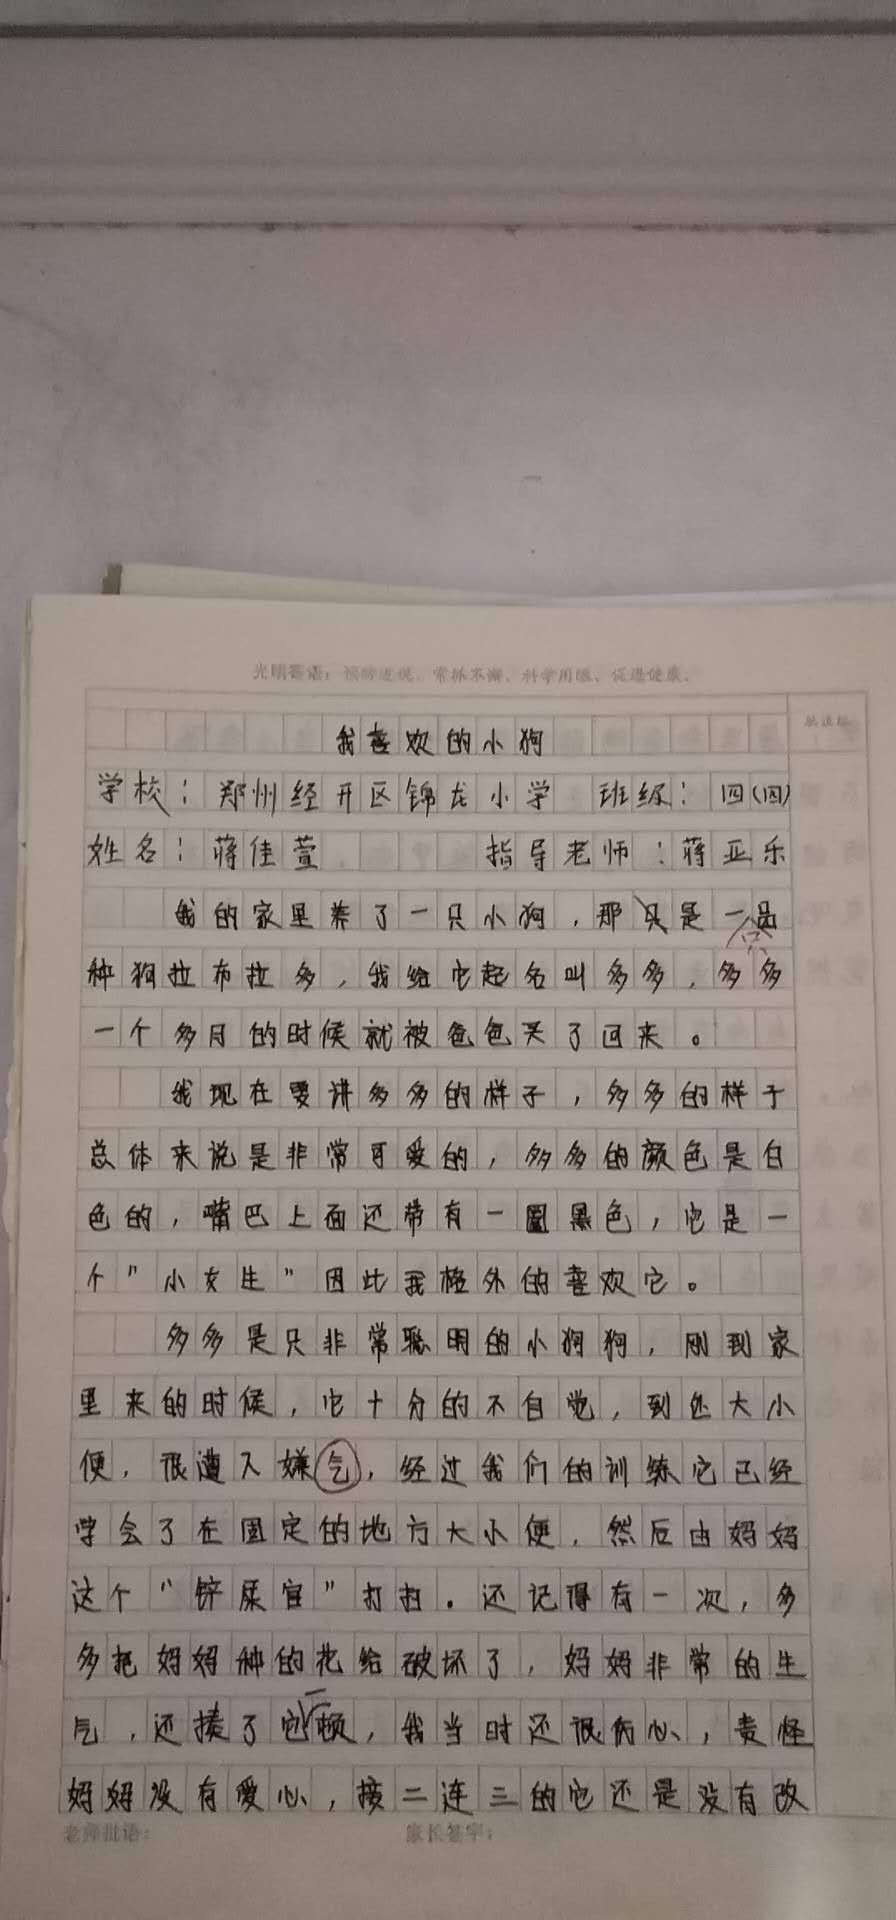 光明寄语：预防近视、常抓不懈、科学用眼、促进健康。
我喜欢的小狗
学校：郑州经开区锦龙小学 班级：四(四)
姓名：蒋佳萱 指导老师：蒋亚乐
我的家里养了一只小狗，那只是一品
只
种狗拉布拉多，我给它起名叫多多，多多
一个多月的时候就被爸爸买了回来。
我现在要讲多多的样子，多多的样子
总体来说是非常可爱的，多多的颜色是白
色的，嘴巴上面还带有一圈黑色，它是一
个"小女生"因此我格外的喜欢它。
多多是只非常聪明的小狗狗，刚到家
里来的时候，它十分的不自觉，到处大小
便，很遭人嫌气，经过我们的训练它已经
学会了在固定的地方大小便，然后由妈妈
这个"铲屎官"打扫。还记得有一次，多
多把妈妈种的花给破坏了，妈妈非常的生
气，还揍了它一顿，我当时还很伤心，责怪
妈妈没有爱心，接二连三的它还是没有改
老师批语： 家长签字：